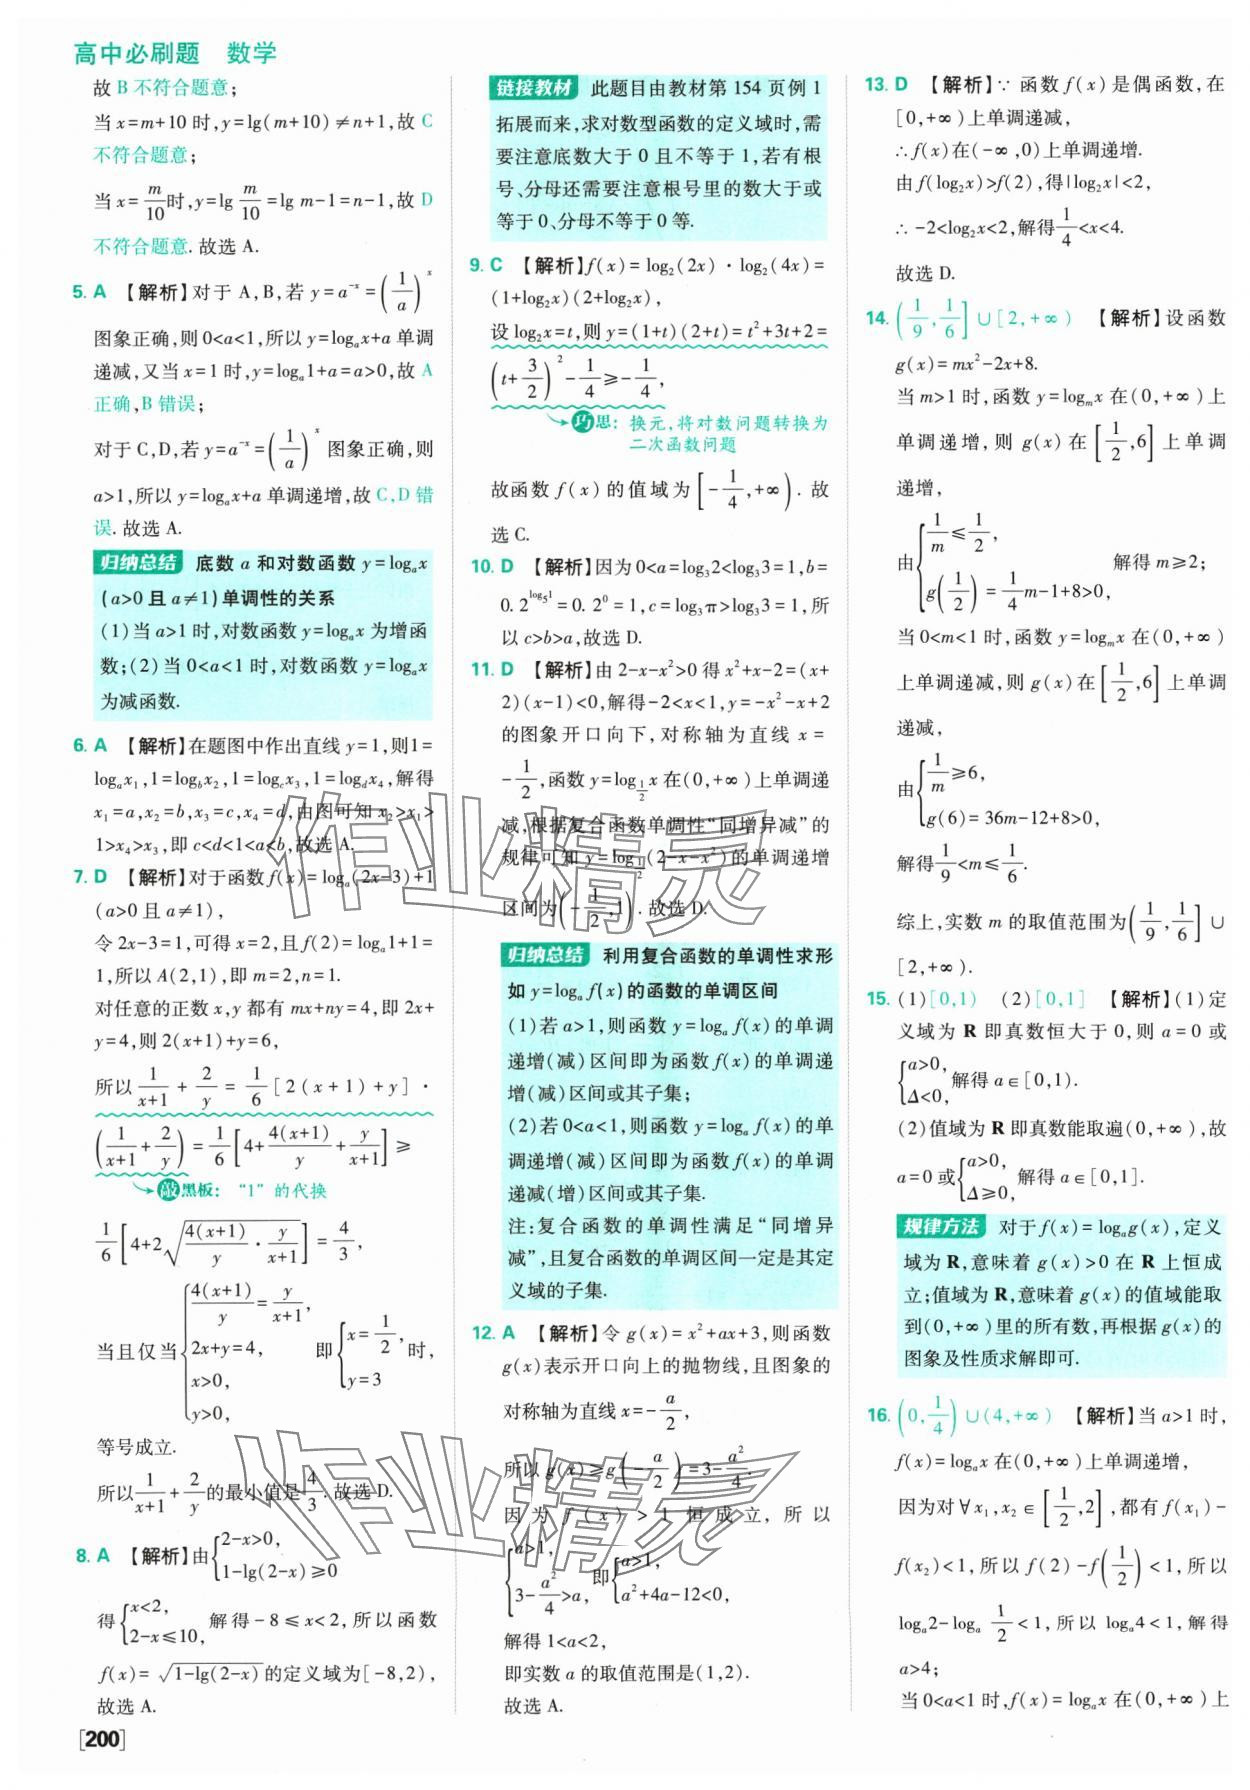 高中必刷题 数学
故 B 不符合题意;
当 x=m+10 时,y=lg(m+10)≠n+1,故 C
不符合题意;
当 x=m/10时,y=lg m/10=lg m-1=n-1,故 D
不符合题意.故选 A.
5. A 【解析】对于 A,B,若 y=a⁻ˣ=(1/a)ˣ
图象正确,则 0<a<1,所以 y=logₐx+a 单调
递减,又当 x=1 时,y=logₐ1+a=a>0,故 A
正确,B 错误;
对于 C,D,若 y=a⁻ˣ=(1/a)ˣ 图象正确,则
a>1,所以 y=logₐx+a 单调递增,故 C,D 错
误.故选 A.
归纳总结 底数 a 和对数函数 y=logₐx
(a>0 且 a≠1)单调性的关系
(1)当 a>1 时,对数函数 y=logₐx 为增函
数;(2)当 0<a<1 时,对数函数 y=logₐx
为减函数.
6. A 【解析】在题图中作出直线 y=1,则1=
logₐx₁,1=log_b x₂,1=log_c x₃,1=log_d x₄,解得
x₁=a,x₂=b,x₃=c,x₄=d,由图可知 x₂>x₁>
1>x₄>x₃,即 c<d<1<a<b,故选 A.
7. D 【解析】对于函数 f(x)=logₐ(2x-3)+1
(a>0 且 a≠1),
令 2x-3=1,可得 x=2,且 f(2)=logₐ1+1=
1,所以 A(2,1),即 m=2,n=1.
对任意的正数 x,y 都有 mx+ny=4,即 2x+
y=4,则 2(x+1)+y=6,
所以 1/(x+1) + 2/y = 1/6 [2(x+1)+y]·
(1/(x+1)+2/y)=1/6[4+4(x+1)/y+y/(x+1)]≥
敲黑板:“1”的代换
1/6[4+2√(4(x+1)/y·y/(x+1))]=4/3,
当且仅当{4(x+1)/y=y/(x+1), 2x+y=4, x>0, y>0, 即{x=1/2, y=3 时,
等号成立.
所以1/(x+1)+2/y的最小值是4/3.故选 D.
8. A 【解析】由{2-x>0, 1-lg(2-x)≥0
得{x<2, 2-x≤10, 解得-8≤x<2,所以函数
f(x)=√(1-lg(2-x))的定义域为[-8,2),
故选 A.
[200]
链接教材 此题目由教材第 154 页例 1
拓展而来,求对数型函数的定义域时,需
要注意底数大于 0 且不等于 1,若有根
号、分母还需要注意根号里的数大于或
等于 0、分母不等于 0 等.
9. C 【解析】f(x)=log₂(2x)·log₂(4x)=
(1+log₂x)(2+log₂x),
设 log₂x=t,则 y=(1+t)(2+t)=t²+3t+2=
(t+3/2)²-1/4≥-1/4,
巧思:换元,将对数问题转换为
二次函数问题
故函数 f(x)的值域为[-1/4,+∞).故
选 C.
10. D 【解析】因为 0<a=log₃2<log₃3=1,b=
0.2^(log₅1)=0.2⁰=1,c=log₃π>log₃3=1,所
以 c>b>a,故选 D.
11. D 【解析】由 2-x-x²>0 得 x²+x-2=(x+
2)(x-1)<0,解得-2<x<1,y=-x²-x+2
的图象开口向下,对称轴为直线 x=
-1/2,函数 y=log_(1/2) x 在(0,+∞)上单调递
减,根据复合函数单调性“同增异减”的
规律可知 y=log_(1/2)(2-x-x²)的单调递增
区间为(-1/2,1).故选 D.
归纳总结 利用复合函数的单调性求形
如 y=logₐf(x)的函数的单调区间
(1)若 a>1,则函数 y=logₐf(x)的单调
递增(减)区间即为函数 f(x)的单调递
增(减)区间或其子集;
(2)若 0<a<1,则函数 y=logₐf(x)的单
调递增(减)区间即为函数 f(x)的单调
递减(增)区间或其子集.
注:复合函数的单调性满足“同增异
减”,且复合函数的单调区间一定是其定
义域的子集.
12. A 【解析】令 g(x)=x²+ax+3,则函数
g(x)表示开口向上的抛物线,且图象的
对称轴为直线 x=-a/2,
所以 g(x)≥g(-a/2)=3-a²/4.
因为 f(x)>1 恒成立,所以
{a>1, 3-a²/4>a, 即{a>1, a²+4a-12<0,
解得 1<a<2,
即实数 a 的取值范围是(1,2).
故选 A.
13. D 【解析】∵ 函数 f(x)是偶函数,在
[0,+∞)上单调递减,
∴f(x)在(-∞,0)上单调递增.
由 f(log₂x)>f(2),得|log₂x|<2,
∴-2<log₂x<2,解得1/4<x<4.
故选 D.
14. (1/9,1/6]∪[2,+∞) 【解析】设函数
g(x)=mx²-2x+8.
当 m>1 时,函数 y=log_m x 在(0,+∞)上
单调递增,则 g(x)在[1/2,6]上单调
递增,
由{1/m≤1/2, g(1/2)=1/4m-1+8>0, 解得 m≥2;
当 0<m<1 时,函数 y=log_m x 在(0,+∞)
上单调递减,则 g(x)在[1/2,6]上单调
递减,
由{1/m≥6, g(6)=36m-12+8>0,
解得1/9<m≤1/6.
综上,实数 m 的取值范围为(1/9,1/6]∪
[2,+∞).
15. (1)[0,1) (2)[0,1] 【解析】(1)定
义域为 R 即真数恒大于 0,则 a=0 或
{a>0, Δ<0, 解得 a∈[0,1).
(2)值域为 R 即真数能取遍(0,+∞),故
a=0 或{a>0, Δ≥0, 解得 a∈[0,1].
规律方法 对于 f(x)=logₐg(x),定义
域为 R,意味着 g(x)>0 在 R 上恒成
立;值域为 R,意味着 g(x)的值域能取
到(0,+∞)里的所有数,再根据 g(x)的
图象及性质求解即可.
16. (0,1/4)∪(4,+∞) 【解析】当 a>1 时,
f(x)=logₐx在(0,+∞)上单调递增,
因为对∀x₁,x₂∈[1/2,2],都有 f(x₁)-
f(x₂)<1,所以 f(2)-f(1/2)<1,所以
logₐ2-logₐ 1/2<1,所以 logₐ4<1,解得
a>4;
当 0<a<1 时,f(x)=logₐx 在(0,+∞)上
作业精灵
作业精灵